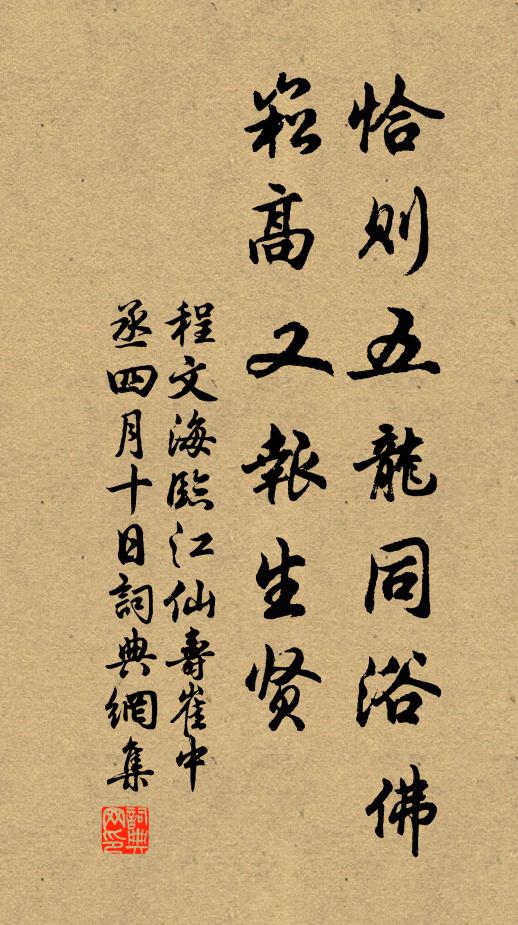 恰则五龍同浴佛
崧高又報生贤
程文海臨江仙壽崔中
丞四月十日詞典網集
詞典网印